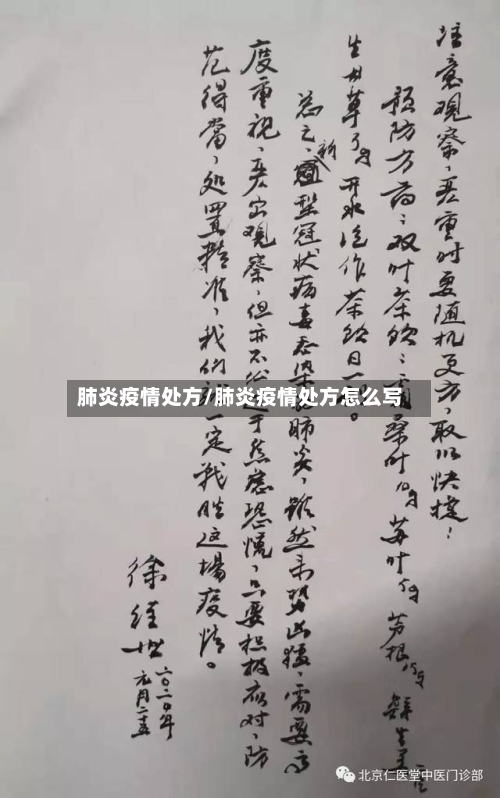 注意观察,严重时要随机更方,取以快捷!
预防方药:双叶茶饮:桑叶10g 苏叶6g 芦根15g 鲜生姜
生甘草3g 开水泡作茶饮日一
总之,新型冠状病毒感染 肺炎,虽然来势凶猛,需要高
度重视,严密观察,但亦不 于焦虑恐慌,只要积极应对,防
范得当,处置精准,我们 一定战胜这场疫情。
徐经世
二〇二〇年
元月二十五
肺炎疫情处方/肺炎疫情处方怎么写
北京仁医堂中医门诊部